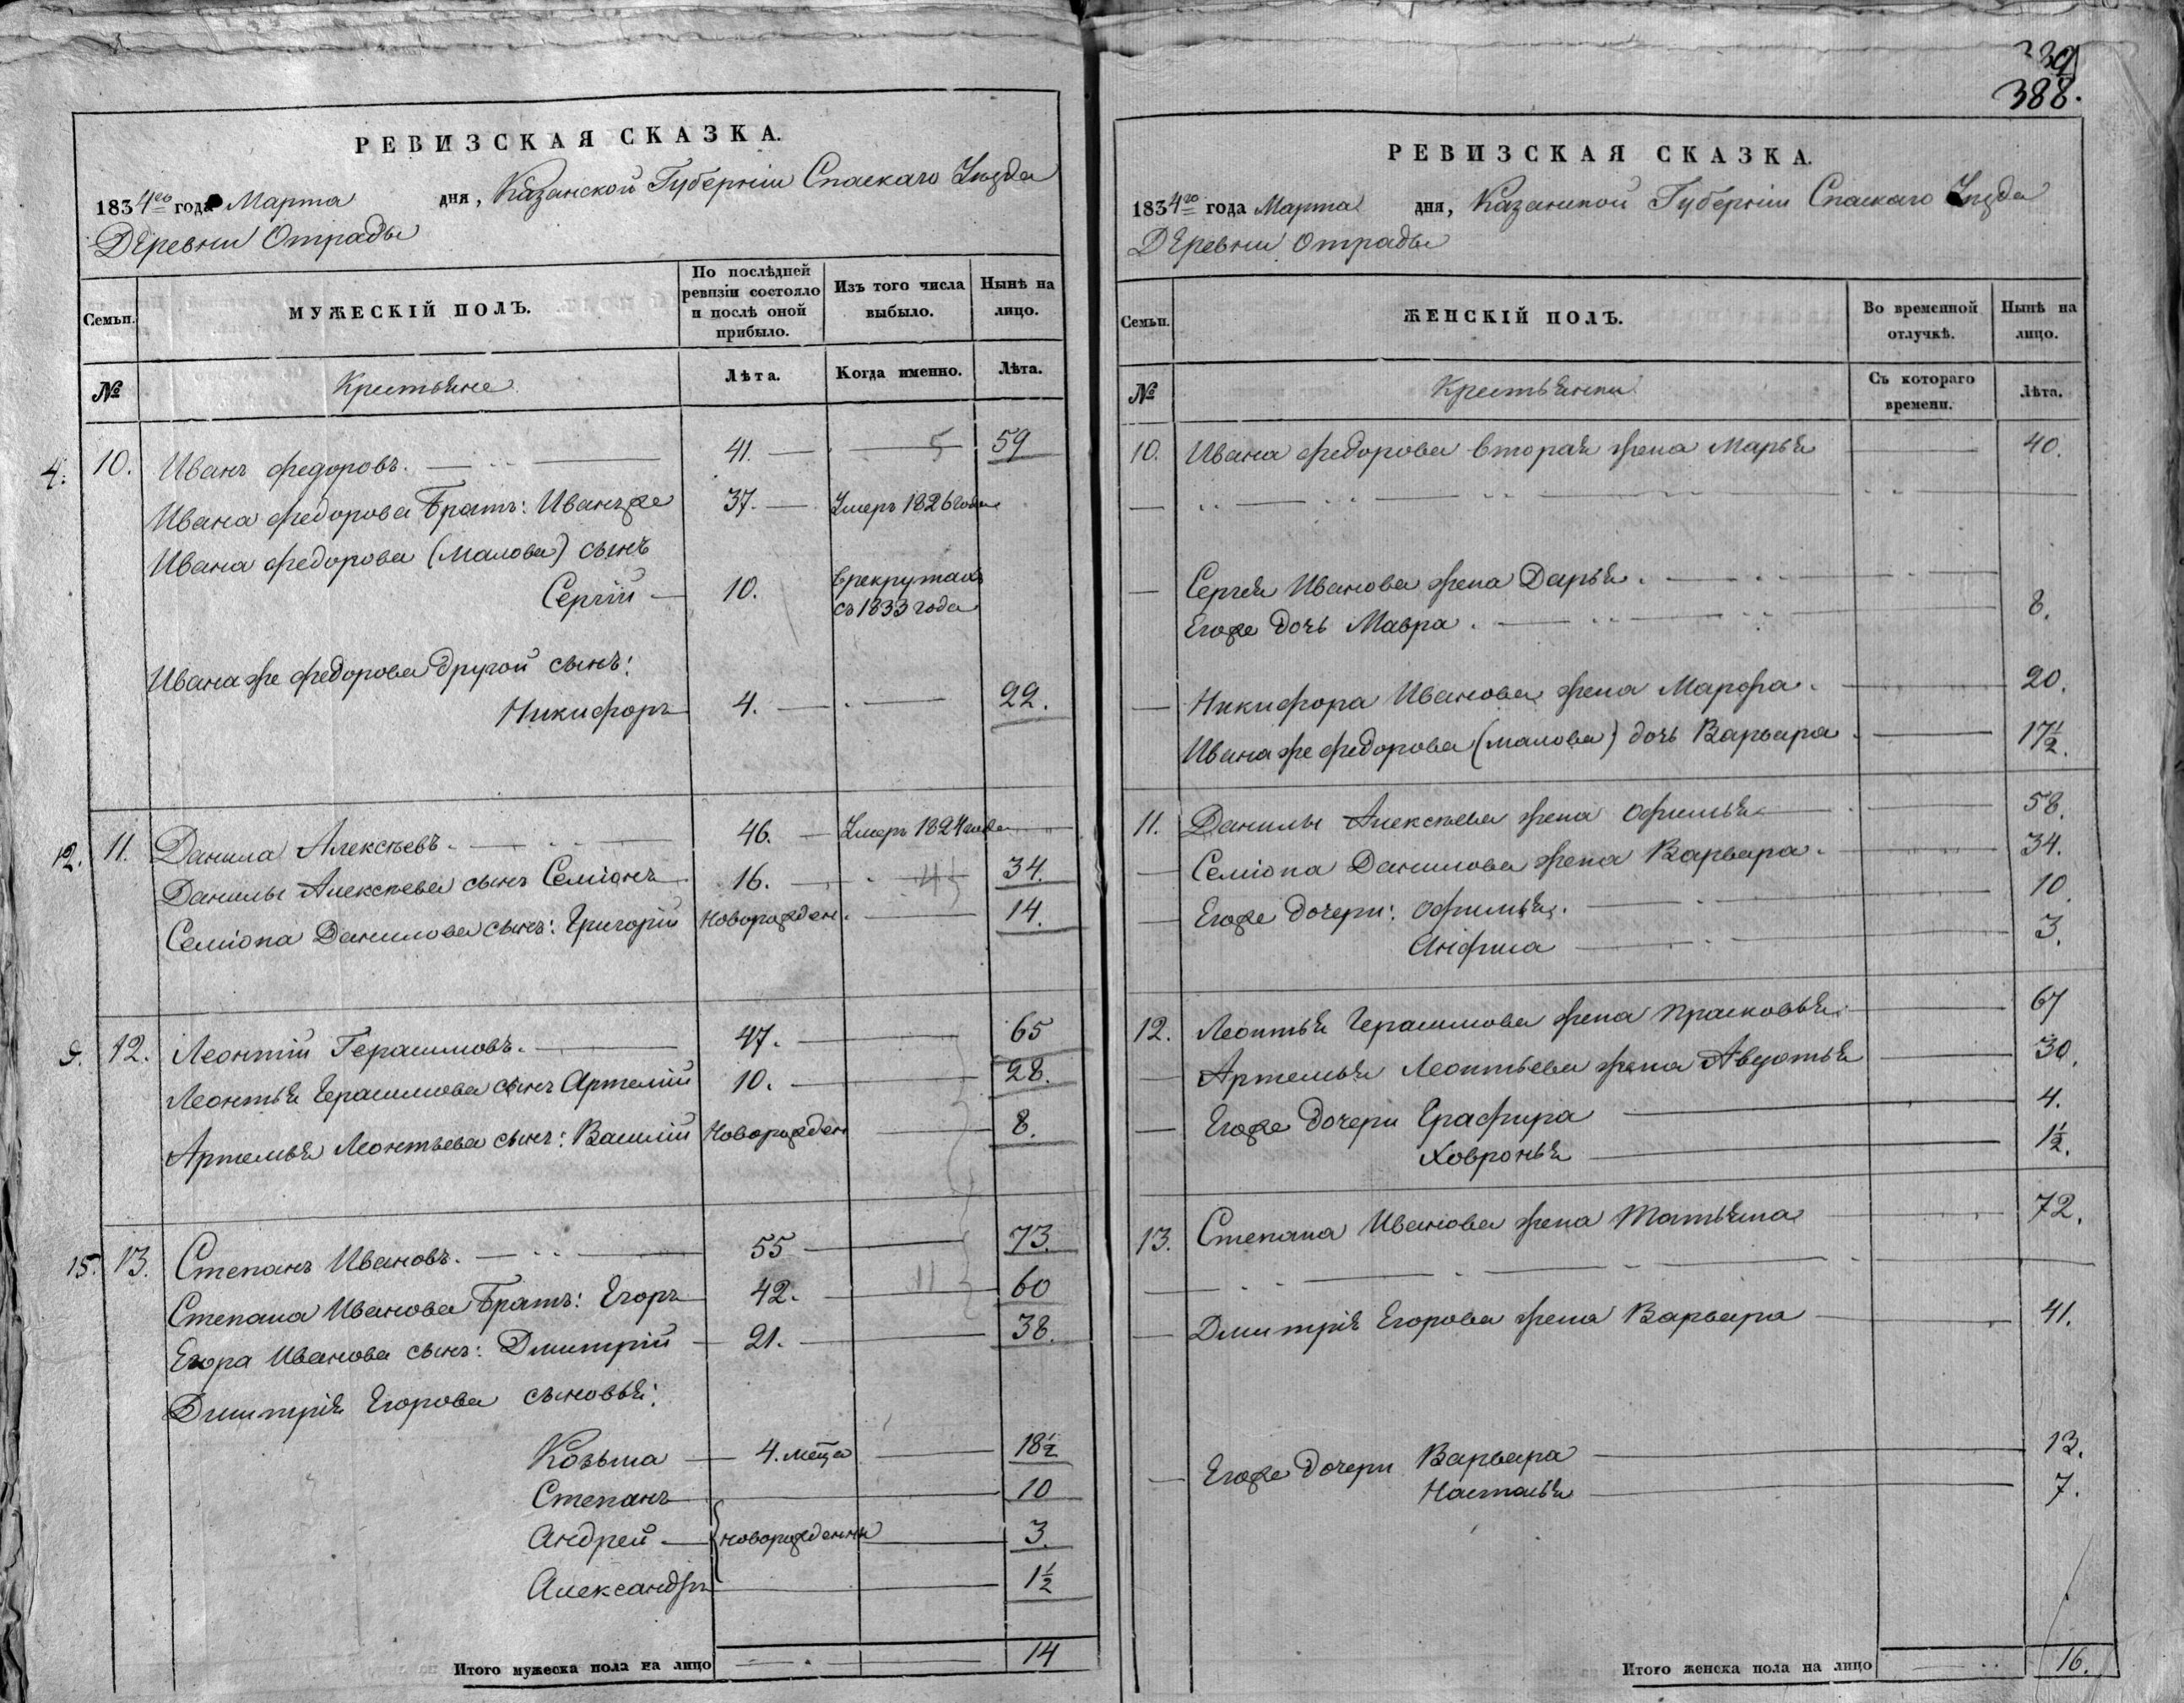 РЕВИЗСКАЯ СКАЗКА.
1834го года Марта дня, Казанской Губерніи Спаскаго Уѣзда
Деревни Отрады
Семьи.
МУЖЕСКІЙ ПОЛЪ.
По послѣдней ревизіи состояло и послѣ оной прибыло.
Изъ того числа выбыло.
Нынѣ на лицо.
№
Крестьяне
Лѣта.
Когда именно.
Лѣта.
4. 10. Иванъ Федоровъ. 41. 5 59
Ивана Федорова Братъ: Иванъ же 37. Умеръ 1826 года
Ивана Федорова (Малова) сынъ
Сергій 10. в рекрутахъ
съ 1833 года
Ивана же Федорова другой сынъ:
Никифоръ 4. 22.
12. 11. Данила Алексѣевъ. 46. Умеръ 1824 года
Данилы Алексѣева сынъ Семіонъ 16. 34.
Семіона Данилова сынъ: Григорій Новорожден. 14.
9. 12. Леонтій Герасимовъ. 47. 65
Леонтья Герасимова сынъ Артемій 10. 28.
Артемья Леонтьева сынъ: Василій Новорожден 8.
15. 13. Степанъ Ивановъ. 55 73.
Степана Иванова Братъ: Егоръ 42. 11 60
Егора Иванова сынъ: Дмитрій 21. 38.
Дмитрія Егорова сыновья:
Козьма 4. мѣца 18 1/2
Степанъ 10
Андрей новорожденны 3.
Александръ 1 1/2
Итого мужеска пола на лицо 14
388.
РЕВИЗСКАЯ СКАЗКА.
1834го года Марта дня, Казанской Губерніи Спаскаго Уѣзда
Деревни Отрады
Семьи.
ЖЕНСКІЙ ПОЛЪ.
Во временной отлучкѣ.
Нынѣ на лицо.
№
Крестьянки
Съ котораго времени.
Лѣта.
10. Ивана Федорова вторая жена Марья 40.
Сергея Иванова жена Дарья.
Его же дочь Мавра. 8.
Никифора Иванова жена Марфа. 20.
Ивана же Федорова (малова) дочь Варвара 17 1/2.
11. Данилы Алексѣева жена Офимья 58.
Семіона Данилова жена Варвара. 34.
Его же дочери: Офимья. 10
Анфиса 3.
12. Леонтья Герасимова жена Прасковья. 67
Артемья Леонтьева жена Авдотья 30.
Его же дочери Графира 4.
Ховронья 1 1/2.
13. Степана Иванова жена Татьяна 72.
Дмитрія Егорова жена Варвара 41.
Его же дочери Варвара 13.
Настасья 7.
Итого женска пола на лицо 16.